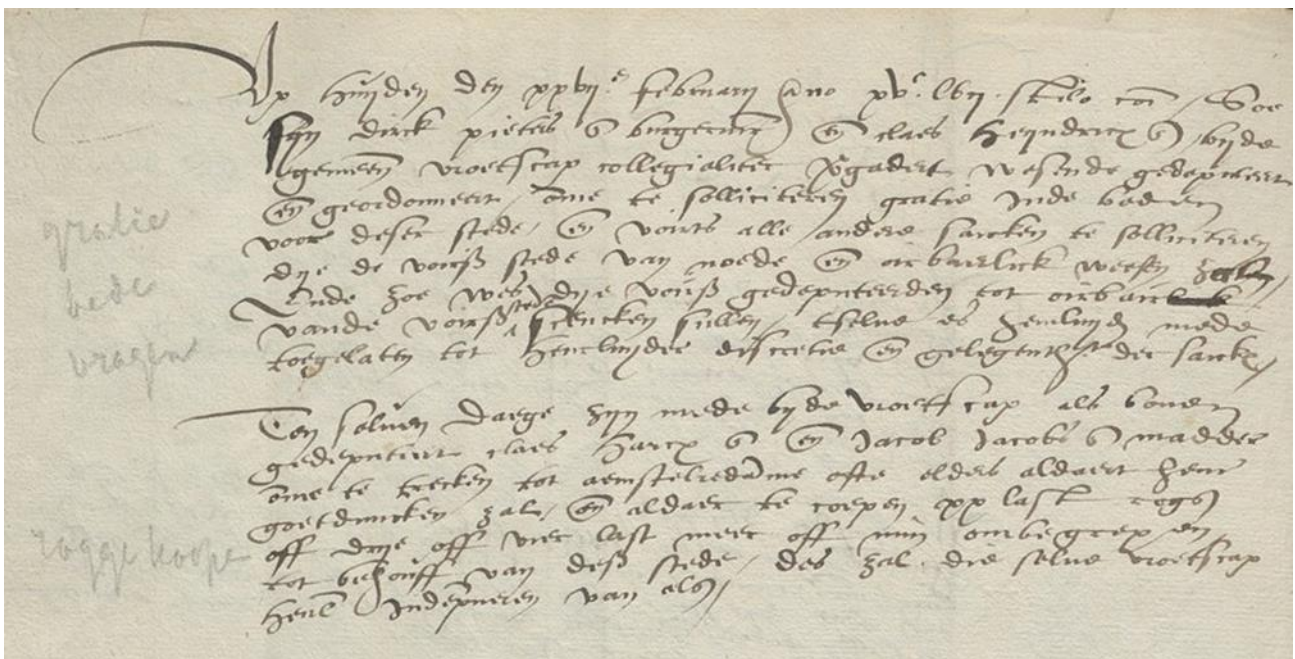 Op huijden den xxvije februarij Anno xvc. lvij. stilo coi / Soe
sijn dirck pieters ȝ burgermr en claes heijndricx ȝ bijde
gemeen vroetscap collegialiter vgadert wesende gedeputeert
en geordonneert ome te solliciteren gratie inde beden
voor deser stede / en voirts alle andere saecken te solliciteren
gratie
die de voirß stede van noede en oirbaerlick wesen zullen /
bede
Ende zoe wes die voirß gedeputeerden tot oirbaer
vande voirß stede schencken sullen / tselve es henluijden mede
vragen
toegelaten tot henluijder discretie en gelegentheijt der saecken /
Ten selven daege zijn mede bijde vroetscap als boven
gedeputeert claes harcx ȝ en Jacob Jacobs ȝ madder
ome te trecken tot aemstelredame ofte elders aldaert hem
goetduncken zal / en aldaer te coepen xx last rogs
off drije off vier last meer off min ombegrepen
rogge koope
tot behouff van deß stede / des zal die selve vroetscap
henl Indempneren van als /